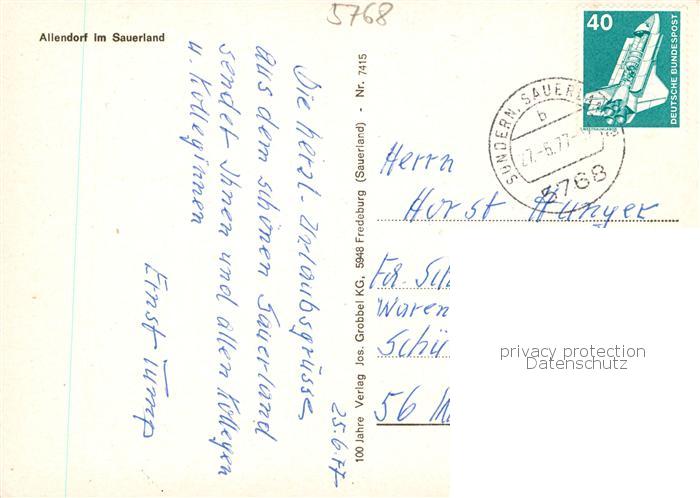 5768
Allendorf im Sauerland
40
DEUTSCHE BUNDESPOST
SUNDERN, SAUERLAND
b
27.-6.77
5768
25.6.77
Die herzl. Urlaubsgrüsse
aus dem schönen Sauerland
sendet Ihnen und allen Kollegen
u. Kolleginnen
Ernst
100 Jahre Verlag Jos. Grobbel KG, 5948 Fredeburg (Sauerland) - Nr. 7415
Herrn
Horst Hunger
Fa.
Waren
56
privacy protection
Datenschutz